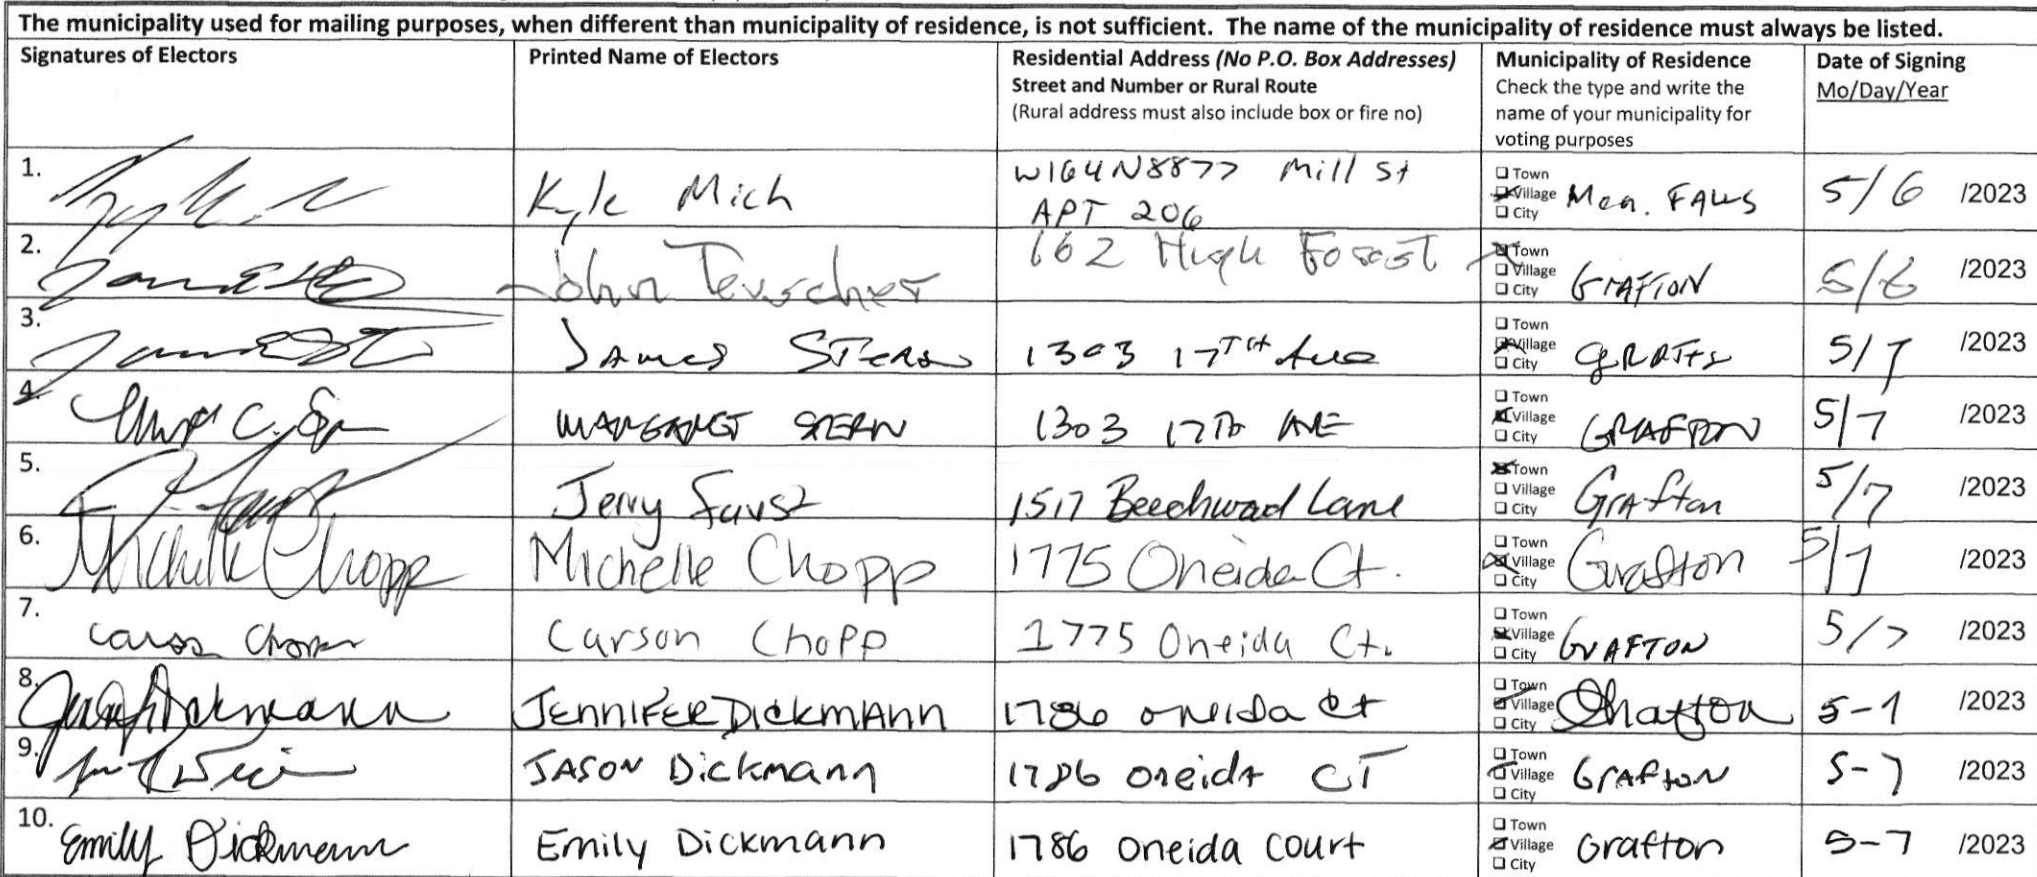 The municipality used for mailing purposes, when different than municipality of residence, is not sufficient. The name of the municipality of residence must always be listed.
Signatures of Electors Printed Name of Electors Residential Address (No P.O. Box Addresses) Street and Number or Rural Route (Rural address must also include box or fire no) Municipality of Residence Check the type and write the name of your municipality for voting purposes Date of Signing Mo/Day/Year
1. Kyle Mich W164N8877 Mill St APT 206 Town Village City Men. FALLS 5/6 /2023
2. John Teuscher 162 High Forest Town Village City GRAFTON 5/6 /2023
3. JAMES STERN 1303 17TH Ave Town Village City 5/7 /2023
4. MARGARET STERN 1303 17TH AVE Town Village City GRAFTON 5/7 /2023
5. Jerry Faust 1517 Beechwood Lane Town Village City Grafton 5/7 /2023
6. Michelle Chopp Michelle Chopp 1775 Oneida Ct. Town Village City Grafton 5/7 /2023
7. Carson Chopp Carson Chopp 1775 Oneida Ct. Town Village City GRAFTON 5/7 /2023
8. JENNIFER DICKMANN 1786 oneida ct Town Village City Grafton 5-7 /2023
9. JASON Dickmann 1786 oneida CT Town Village City GRAFTON 5-7 /2023
10. Emily Dickmann Emily Dickmann 1786 Oneida Court Town Village City Grafton 5-7 /2023